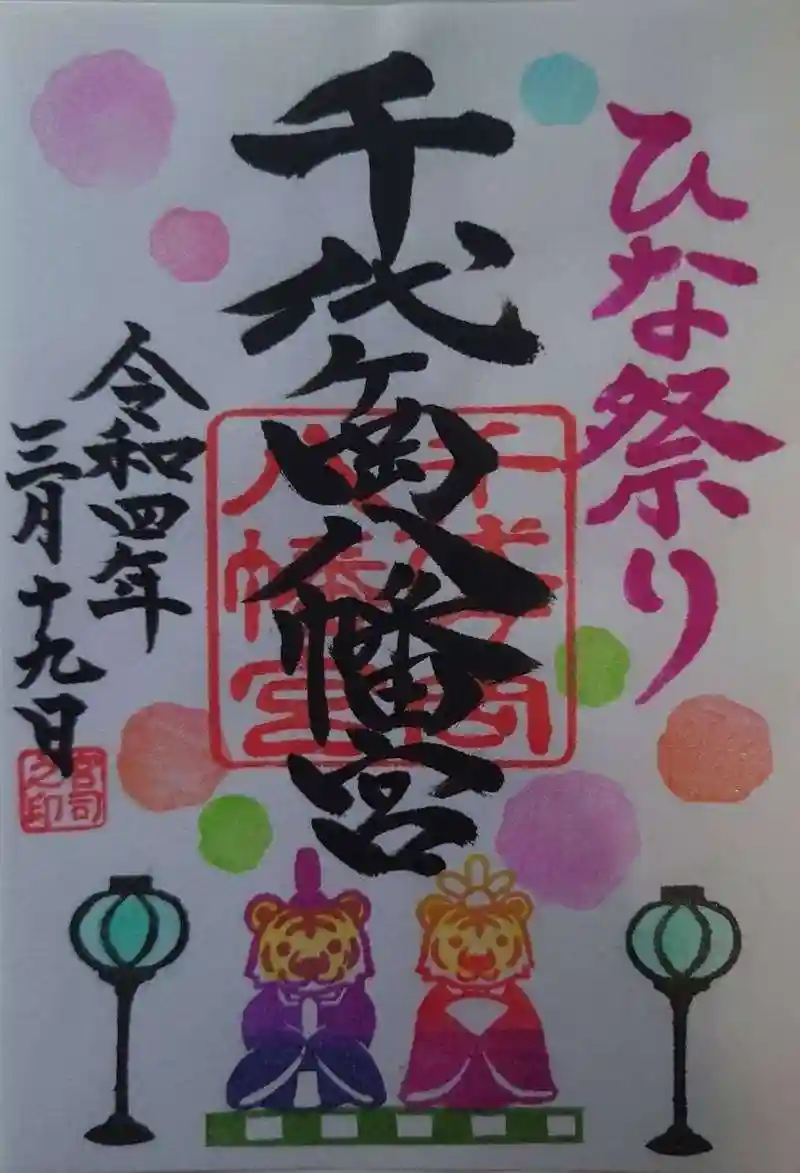 ひな祭り
千代ヶ岡八幡宮
千代ヶ岡
八幡宮
令和四年
三月十九日
宮司
之印